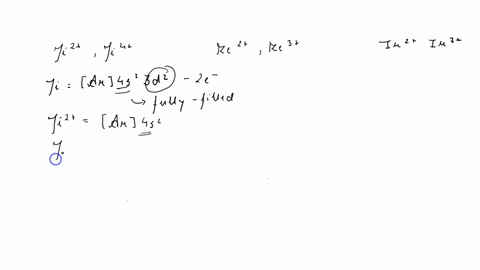 Ti²⁺, Ti⁴⁺ Re²⁺, Re³⁺ Ir²⁺ Ir³⁺
Ti = [Ar] 4s² 3d² - 2e⁻
↳ fully-filled
Ti²⁺ = [Ar] 4s²
T